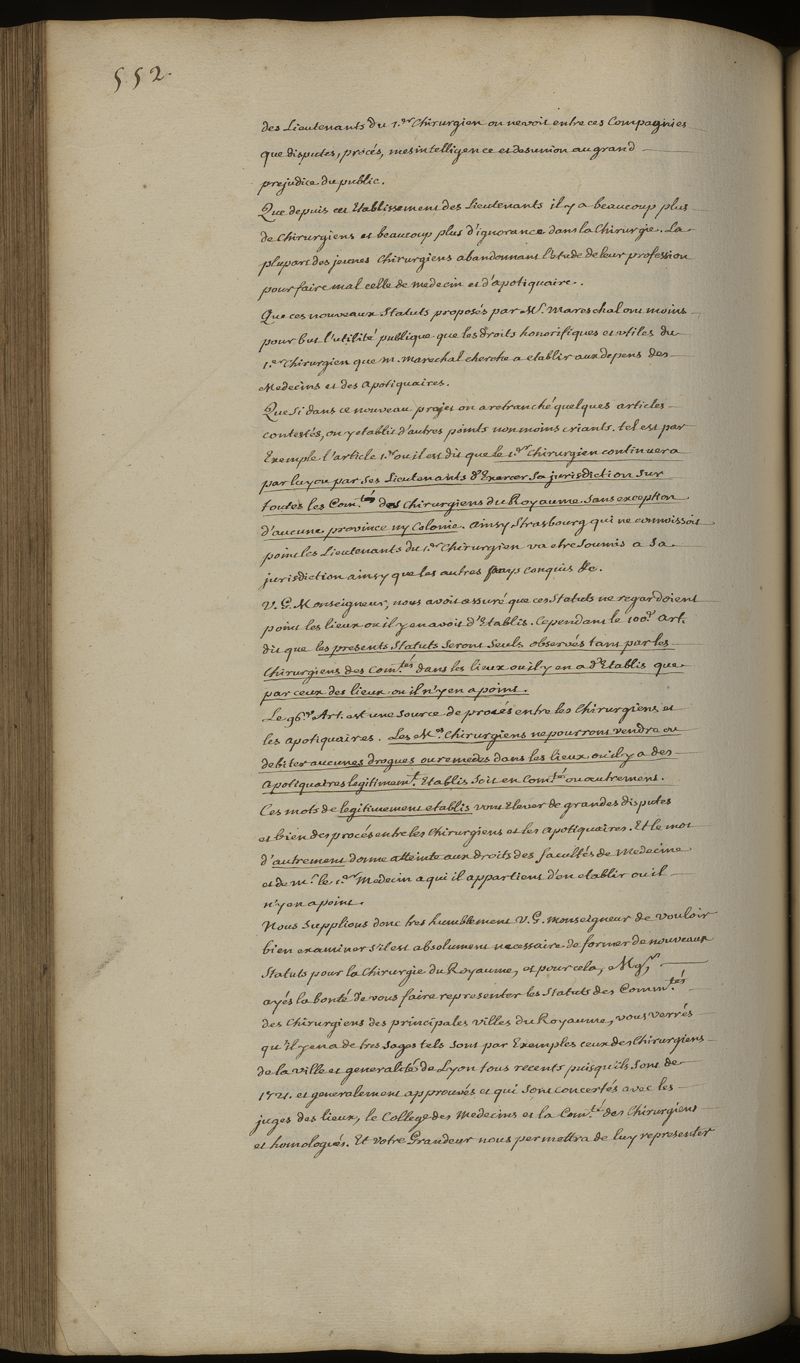 552.
des Lieutenants du 1.er Chirurgien on ne voit entre ces Compagnies
que disputes, procés, mesintelligence et desunion au grand
prejudice du public.
Que depuis cet Etablissement des Lieutenants il y a beaucoup plus
de Chirurgiens et beaucoup plus d'ignorance dans la Chirurgie. La
plupart des jeunes Chirurgiens abandonnant l'etude de leur profession
pour faire mal celle de medecin et d'apotiquaire.
Que ces nouveaux Statuts proposés par M.r Mareschal ont moins
pour but l'utilité publique que les droits honorifiques et utiles du
1.er Chirurgien que M. Marechal cherche a etablir aux depens des
Medecins et des Apotiquaires.
Que Si dans ce nouveau projet on a retranché quelques articles
contestés, on y etablit d'autres points non moins criants. tel est par
Exemple l'article 1.er ou il est dit que le 1.er Chirurgien continuera
par luy ou par Ses Lieutenants d'Exercer Sa jurisdiction Sur
toutes les Com.tés des Chirurgiens du Royaume Sans exception
d'aucune province ny Colonie. ainsy Strasbourg qui ne connoissoit
point les Lieutenants du 1.er Chirurgien va etre Soumis a Sa
jurisdiction ainsy que les autres pays conquis &c.
V. G. Monseigneur, nous avoit assuré que ces Statuts ne regardoient
point les lieux ou il y en avoit d'Etablis. Cependant le 100.e Art.
dit que les presents Statuts Seront Seuls observés tant par les
Chirurgiens des Com.tés dans les lieux ou il y en a d'Etablis que
par ceux des lieux ou il n'y en a point.
Le 96.e Art. est une Source de procés entre les Chirurgiens et
les apotiquaires. Les M.es Chirurgiens ne pourront vendre ou
debiter aucunes drogues ou remedes dans les lieux ou il y a des
Apotiquaires legitimem.t Etablis Soit en Com.té ou autrement.
Ces mots de legitimement etablis vont Elever de grandes disputes
et bien des procés entre les Chirurgiens et les Apotiquaires. Et le mot
d'autrement donne atteinte aux droits des facultés de Medecine
et de M.r le 1.er Medecin a qui il appartient d'en etablir ou il
n'y en a point.
Nous Supplions donc tres humblement V. G. Monseigneur de vouloir
bien examiner s'il est absolument necessaire de former de nouveaux
Statuts pour la Chirurgie du Royaume, et pour cela, Mg.r
ayés la bonté de vous faire representer les Statuts des Comm.tés
des Chirurgiens des principales villes du Royaume, vous verrés
qu'il y en a de tres Sages tels Sont par Exemples ceux des Chirurgiens
de la ville et generalité de Lyon tous recents puisqu'ils Sont de
1721. et generalement approuvés et qui Sont concertés avec les
juges des lieux, le College des Medecins et la Com.té des Chirurgiens
et homologués. Et Votre Grandeur nous permettra de luy representer